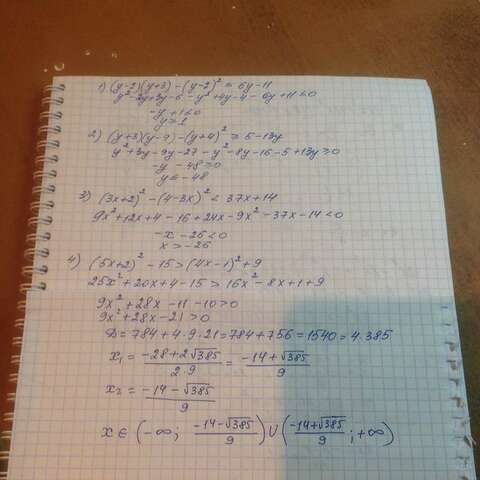 1) (y-2)(y+3)-(y-2)² ≤ 6y-11
y²-2y+3y-6-y²+4y-4-6y+11≤0
-y+1≤0
y≥1
2) (y+3)(y-9)-(y+4)² ≥ 5-13y
y²+3y-9y-27-y²-8y-16-5+13y≥0
-y-48≥0
y≤-48
3) (3x+2)²-(4-3x)² < 37x+14
9x²+12x+4-16+24x-9x²-37x-14<0
-x-26<0
x>-26
4) (5x+2)²-15>(4x-1)²+9
25x²+20x+4-15>16x²-8x+1+9
9x²+28x-11-10>0
9x²+28x-21>0
D=784+4·9·21=784+756=1540=4·385
x₁ = (-28+2√385)/(2·9) = (-14+√385)/9
x₂ = (-14-√385)/9
x∈(-∞; (-14-√385)/9)∪((-14+√385)/9; +∞)